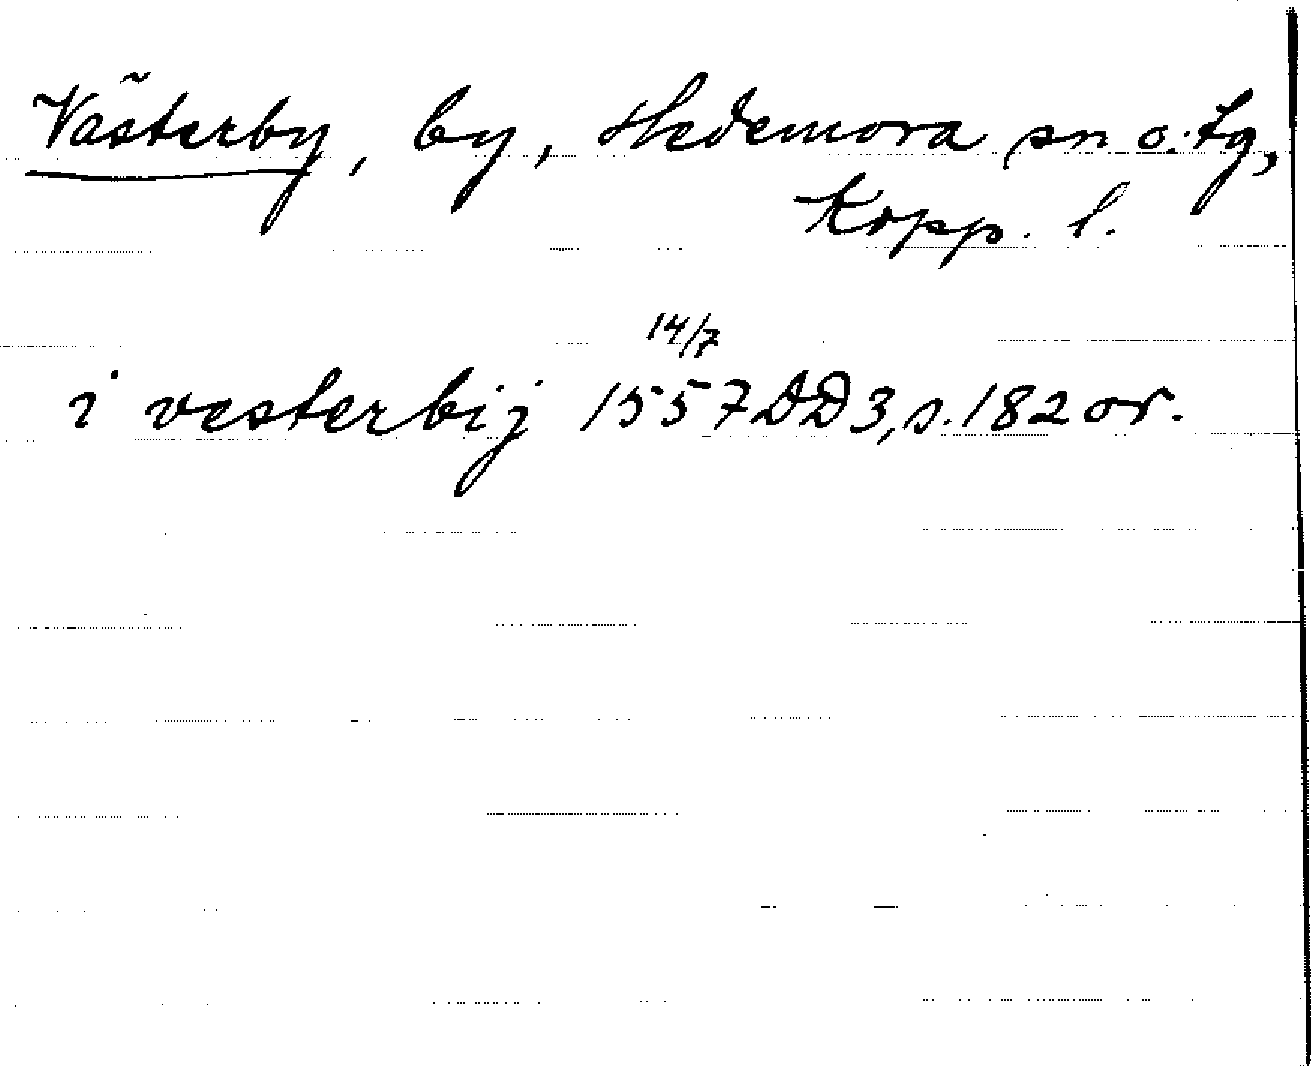 Västerby, by, Hedemora sn o. tg,
Kopp. l.
14/7
i vesterbij 1557 DD3, s. 182 or.